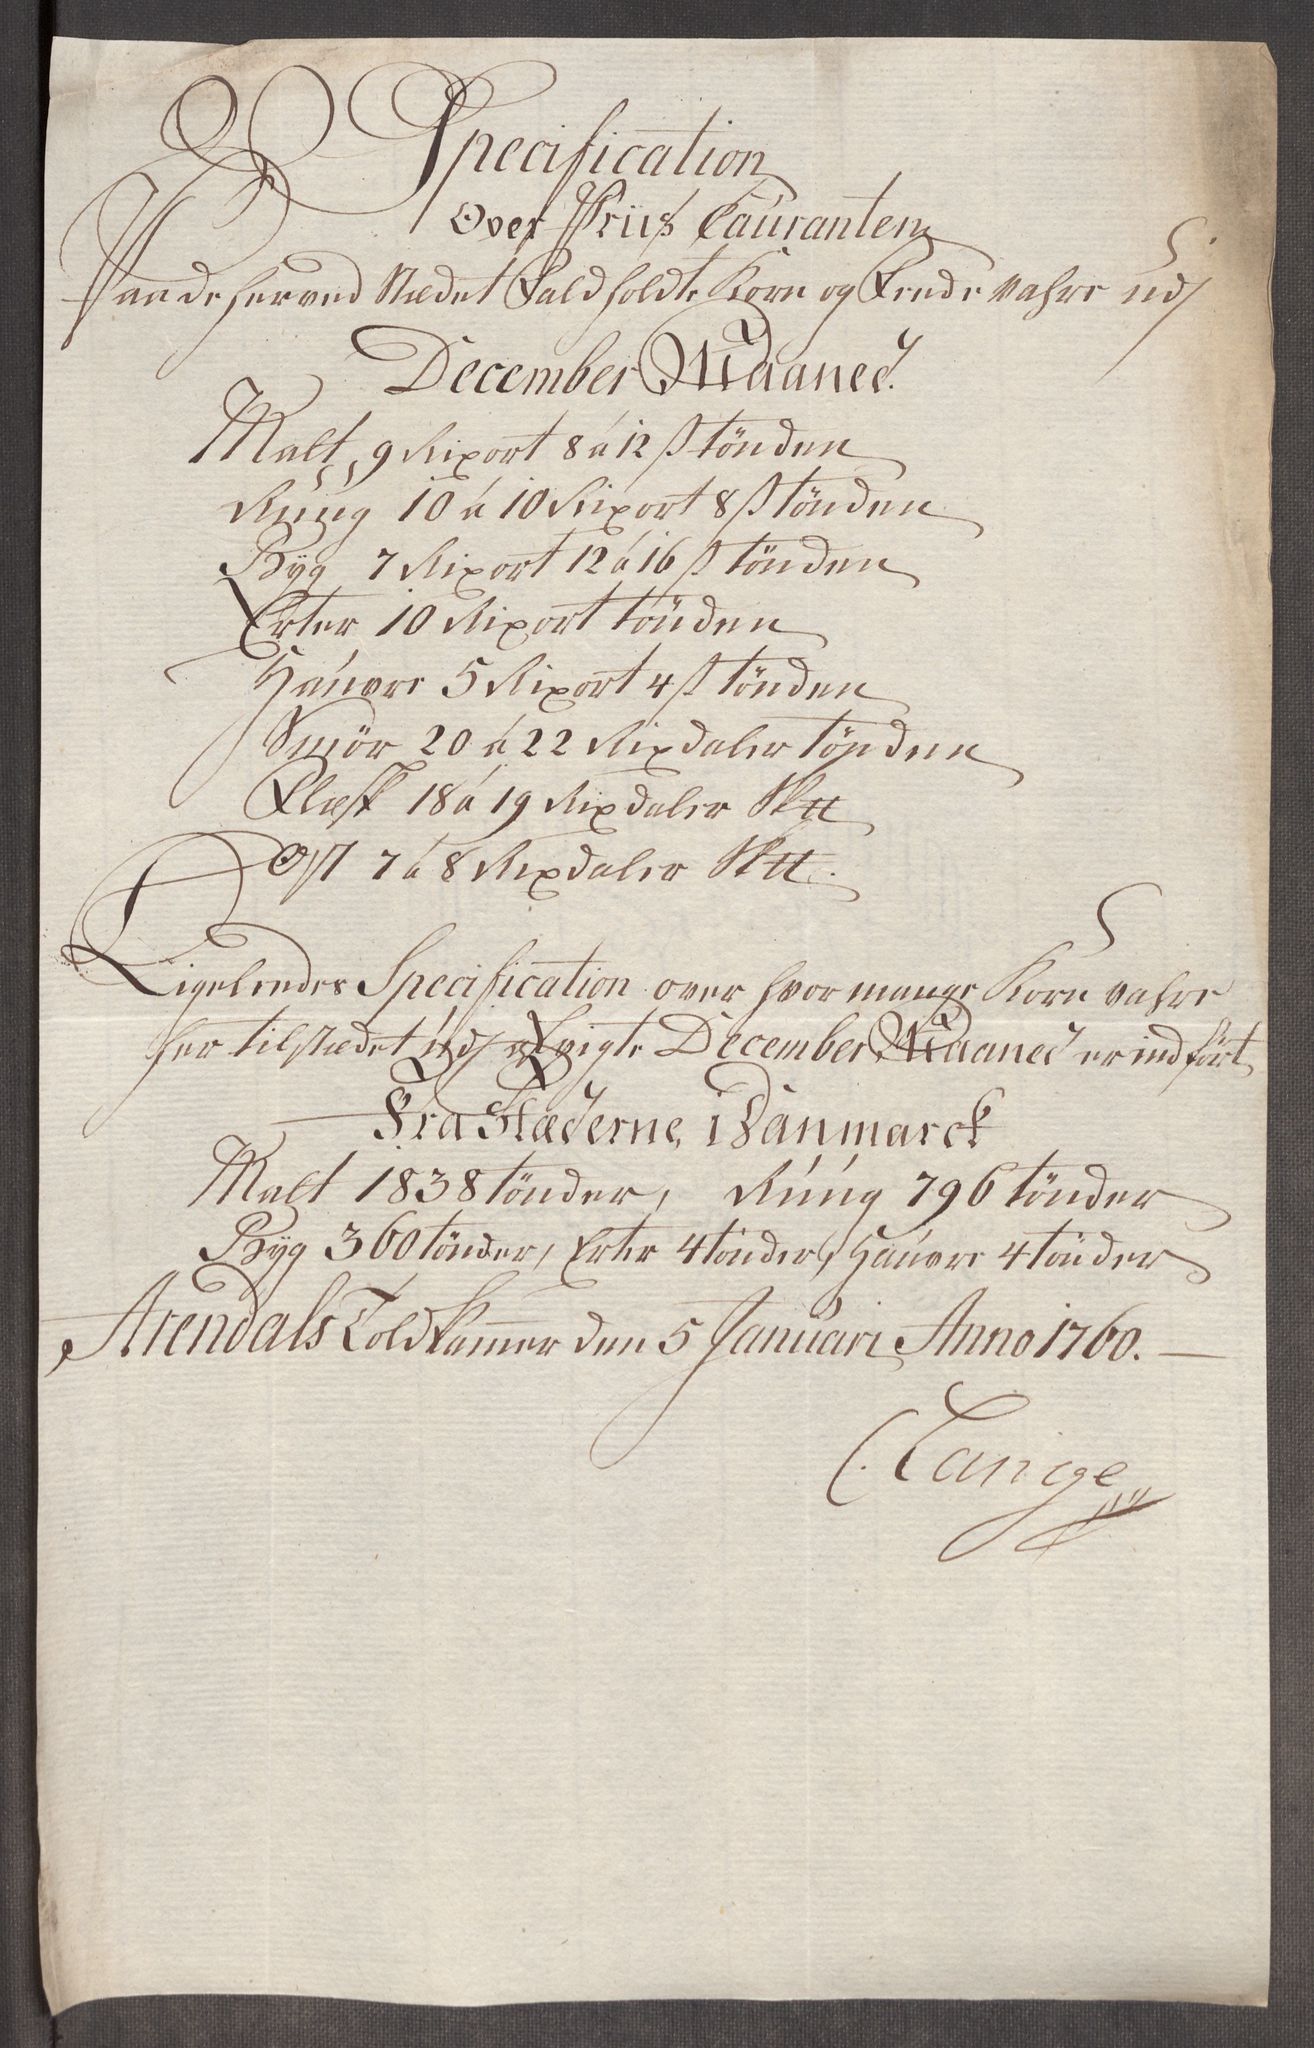 Specification
Over Priis Cauranten
Paa de her ved Stædet Fald holdte Korn og Fende Vahre udj
December Maaned.
Malt, 9 Rixort 8 a 12 s tönden
Rúúg 10 a 10 Rixort 8 s tönden
Byg 7 Rixort 12 a 16 s tönden
Erter 10 Rixort tönden
Háúvre 5 Rixort 4 s tönden
Smör 20 a 22 Rixdaler tönden
Flæsk 18 a 19 Rixdaler Sktt
Ost 7 a 8 Rixdaler Sktt.
Ligeleedes Specification over hvor mange Korn vahre
her til Stædet údj afvigte December Maaned er ind fört
Fra Stæderne, i Danmarck
Malt 1838 tönder, Rúúg 796 tönder
Byg 360 tönder, Erter 4 tönder, Háúvre 4 tönder
Arendals Told Kammer den 5 Januari Anno 1760.
C. Lange